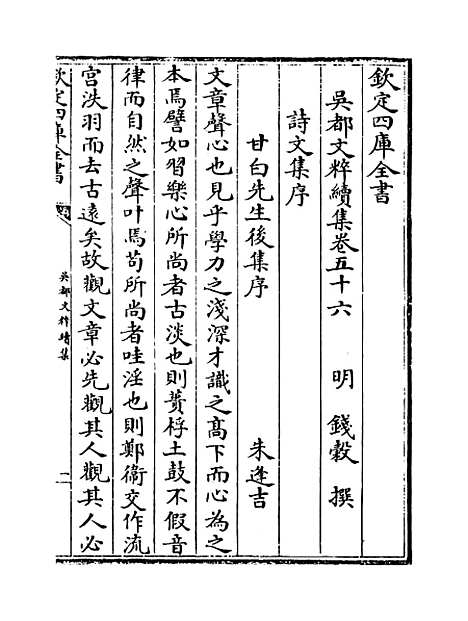 欽定四庫全書
吳都文粹續集卷五十六　明　錢穀　撰
詩文集序
甘白先生後集序　朱逢吉
文章聲心也見乎學力之淺深才識之髙下而心為之
本焉譬如習樂心所尚者古淡也則蕢桴土鼓不假音
律而自然之聲叶焉苟所尚者哇淫也則鄭衛交作流
宫泆羽而去古遠矣故觀文章必先觀其人觀其人必
欽定四庫全書
吳都文粹續集
二